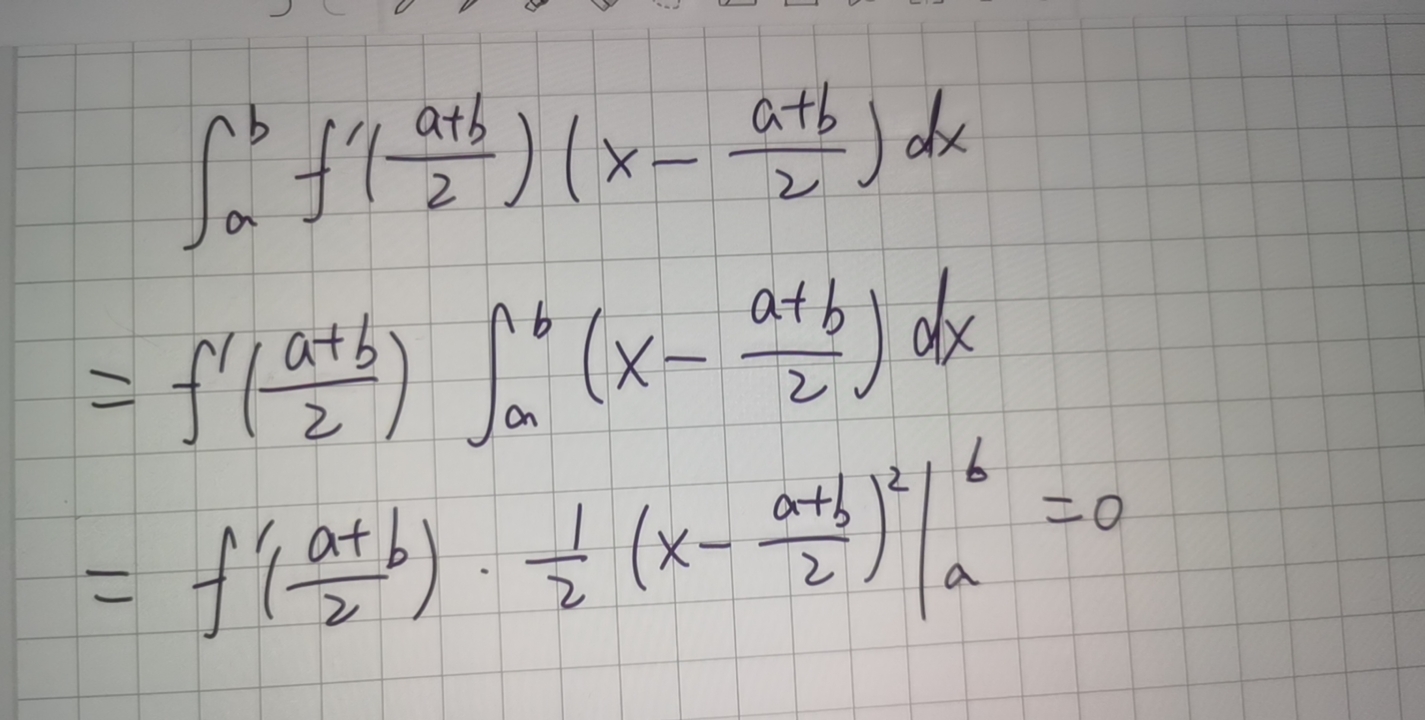 ∫_a^b f'((a+b)/2) (x - (a+b)/2) dx
= f'((a+b)/2) ∫_a^b (x - (a+b)/2) dx
= f'((a+b)/2) · 1/2 (x - (a+b)/2)² |_a^b = 0